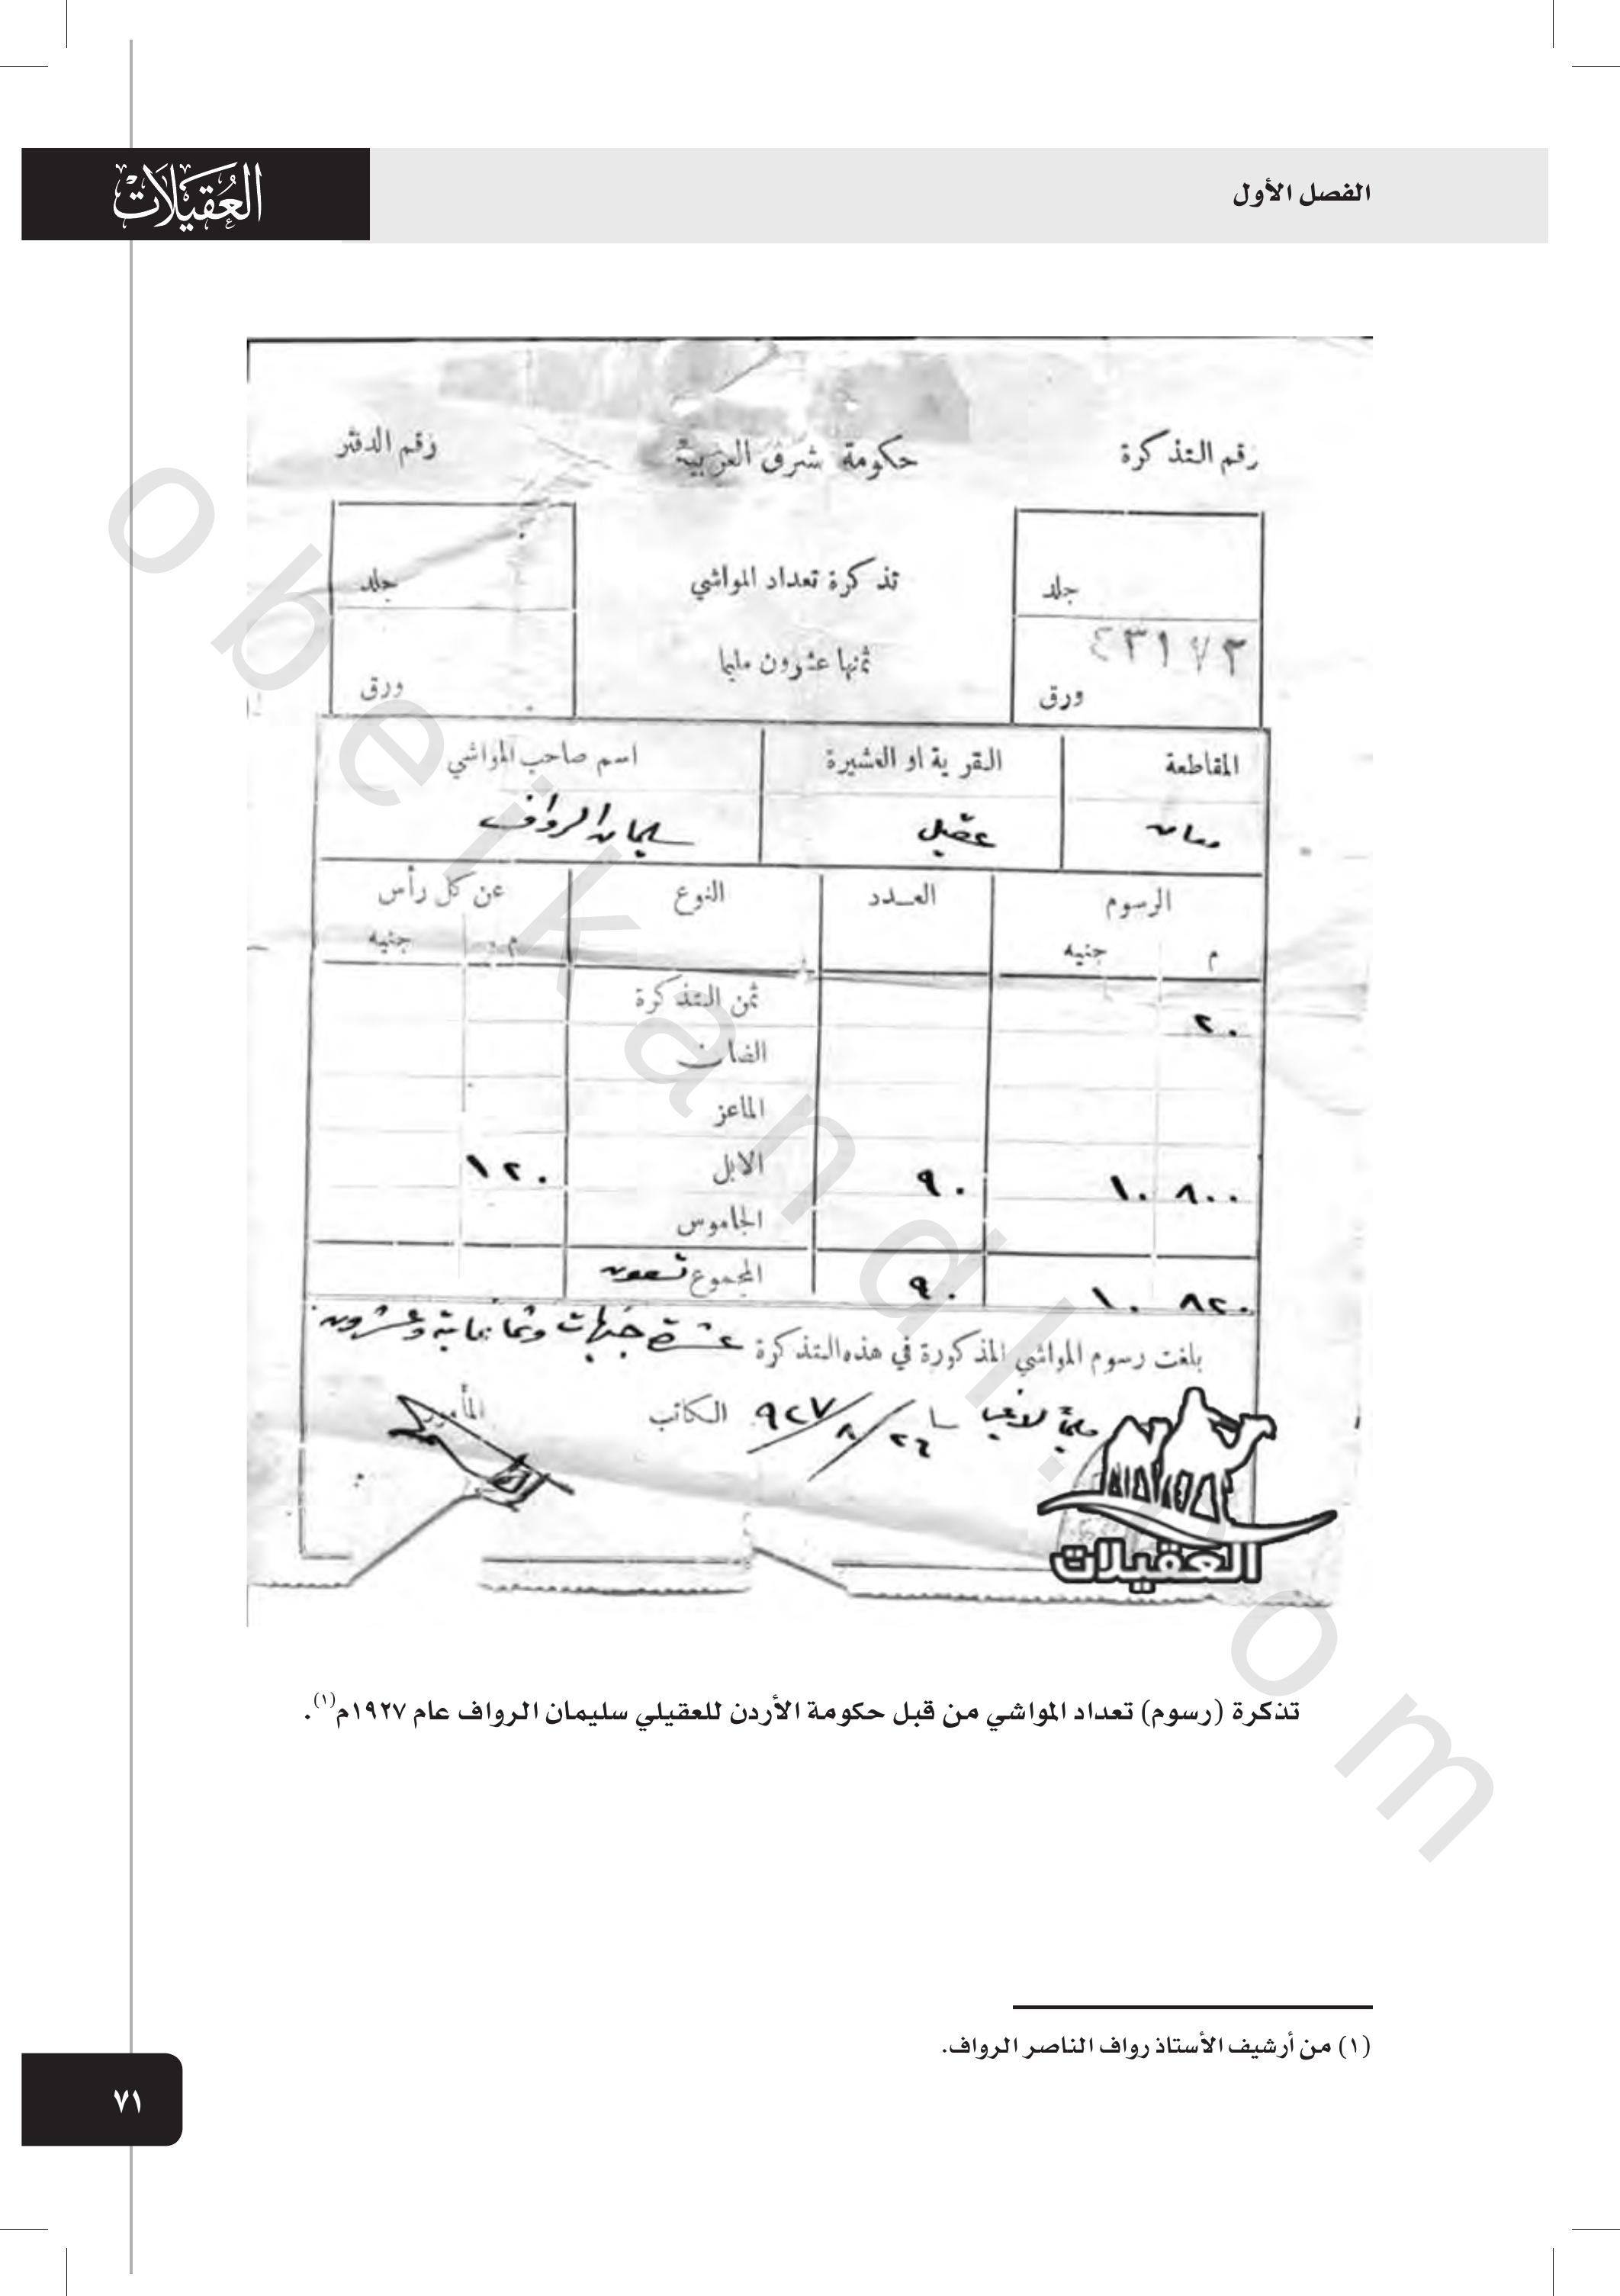 الفصل الأول
العُقَيلَات
رقم التذكرة
حكومة شرق العربية
رقم الدفتر
تذكرة تعداد المواشي
جلد
جلد
ثمنها عشرون مليما
٤٣١٧٣
ورق
ورق
المقاطعة القرية او العشيرة اسم صاحب المواشي
معان عقيل سليمان الرواف
الرسوم العدد النوع عن كل رأس
م جنيه م جنيه
٢٠ ثمن التذكرة
الضان
الماعز
٨٠٠ ١٠ ٩٠ الابل ١٢٠
الجاموس
٨٢٠ ١٠ ٩٠ المجموع تسعون
بلغت رسوم المواشي المذكورة في هذه التذكرة عشرة جنيهات وثمانماية وعشرون
مليماً لاغير ٩٢٧/٨/٢٤ الكاتب المأمور
العقيلات
تذكرة (رسوم) تعداد المواشي من قبل حكومة الأردن للعقيلي سليمان الرواف عام ١٩٢٧م(١).
(١) من أرشيف الأستاذ رواف الناصر الرواف.
٧١
obeikandl.com